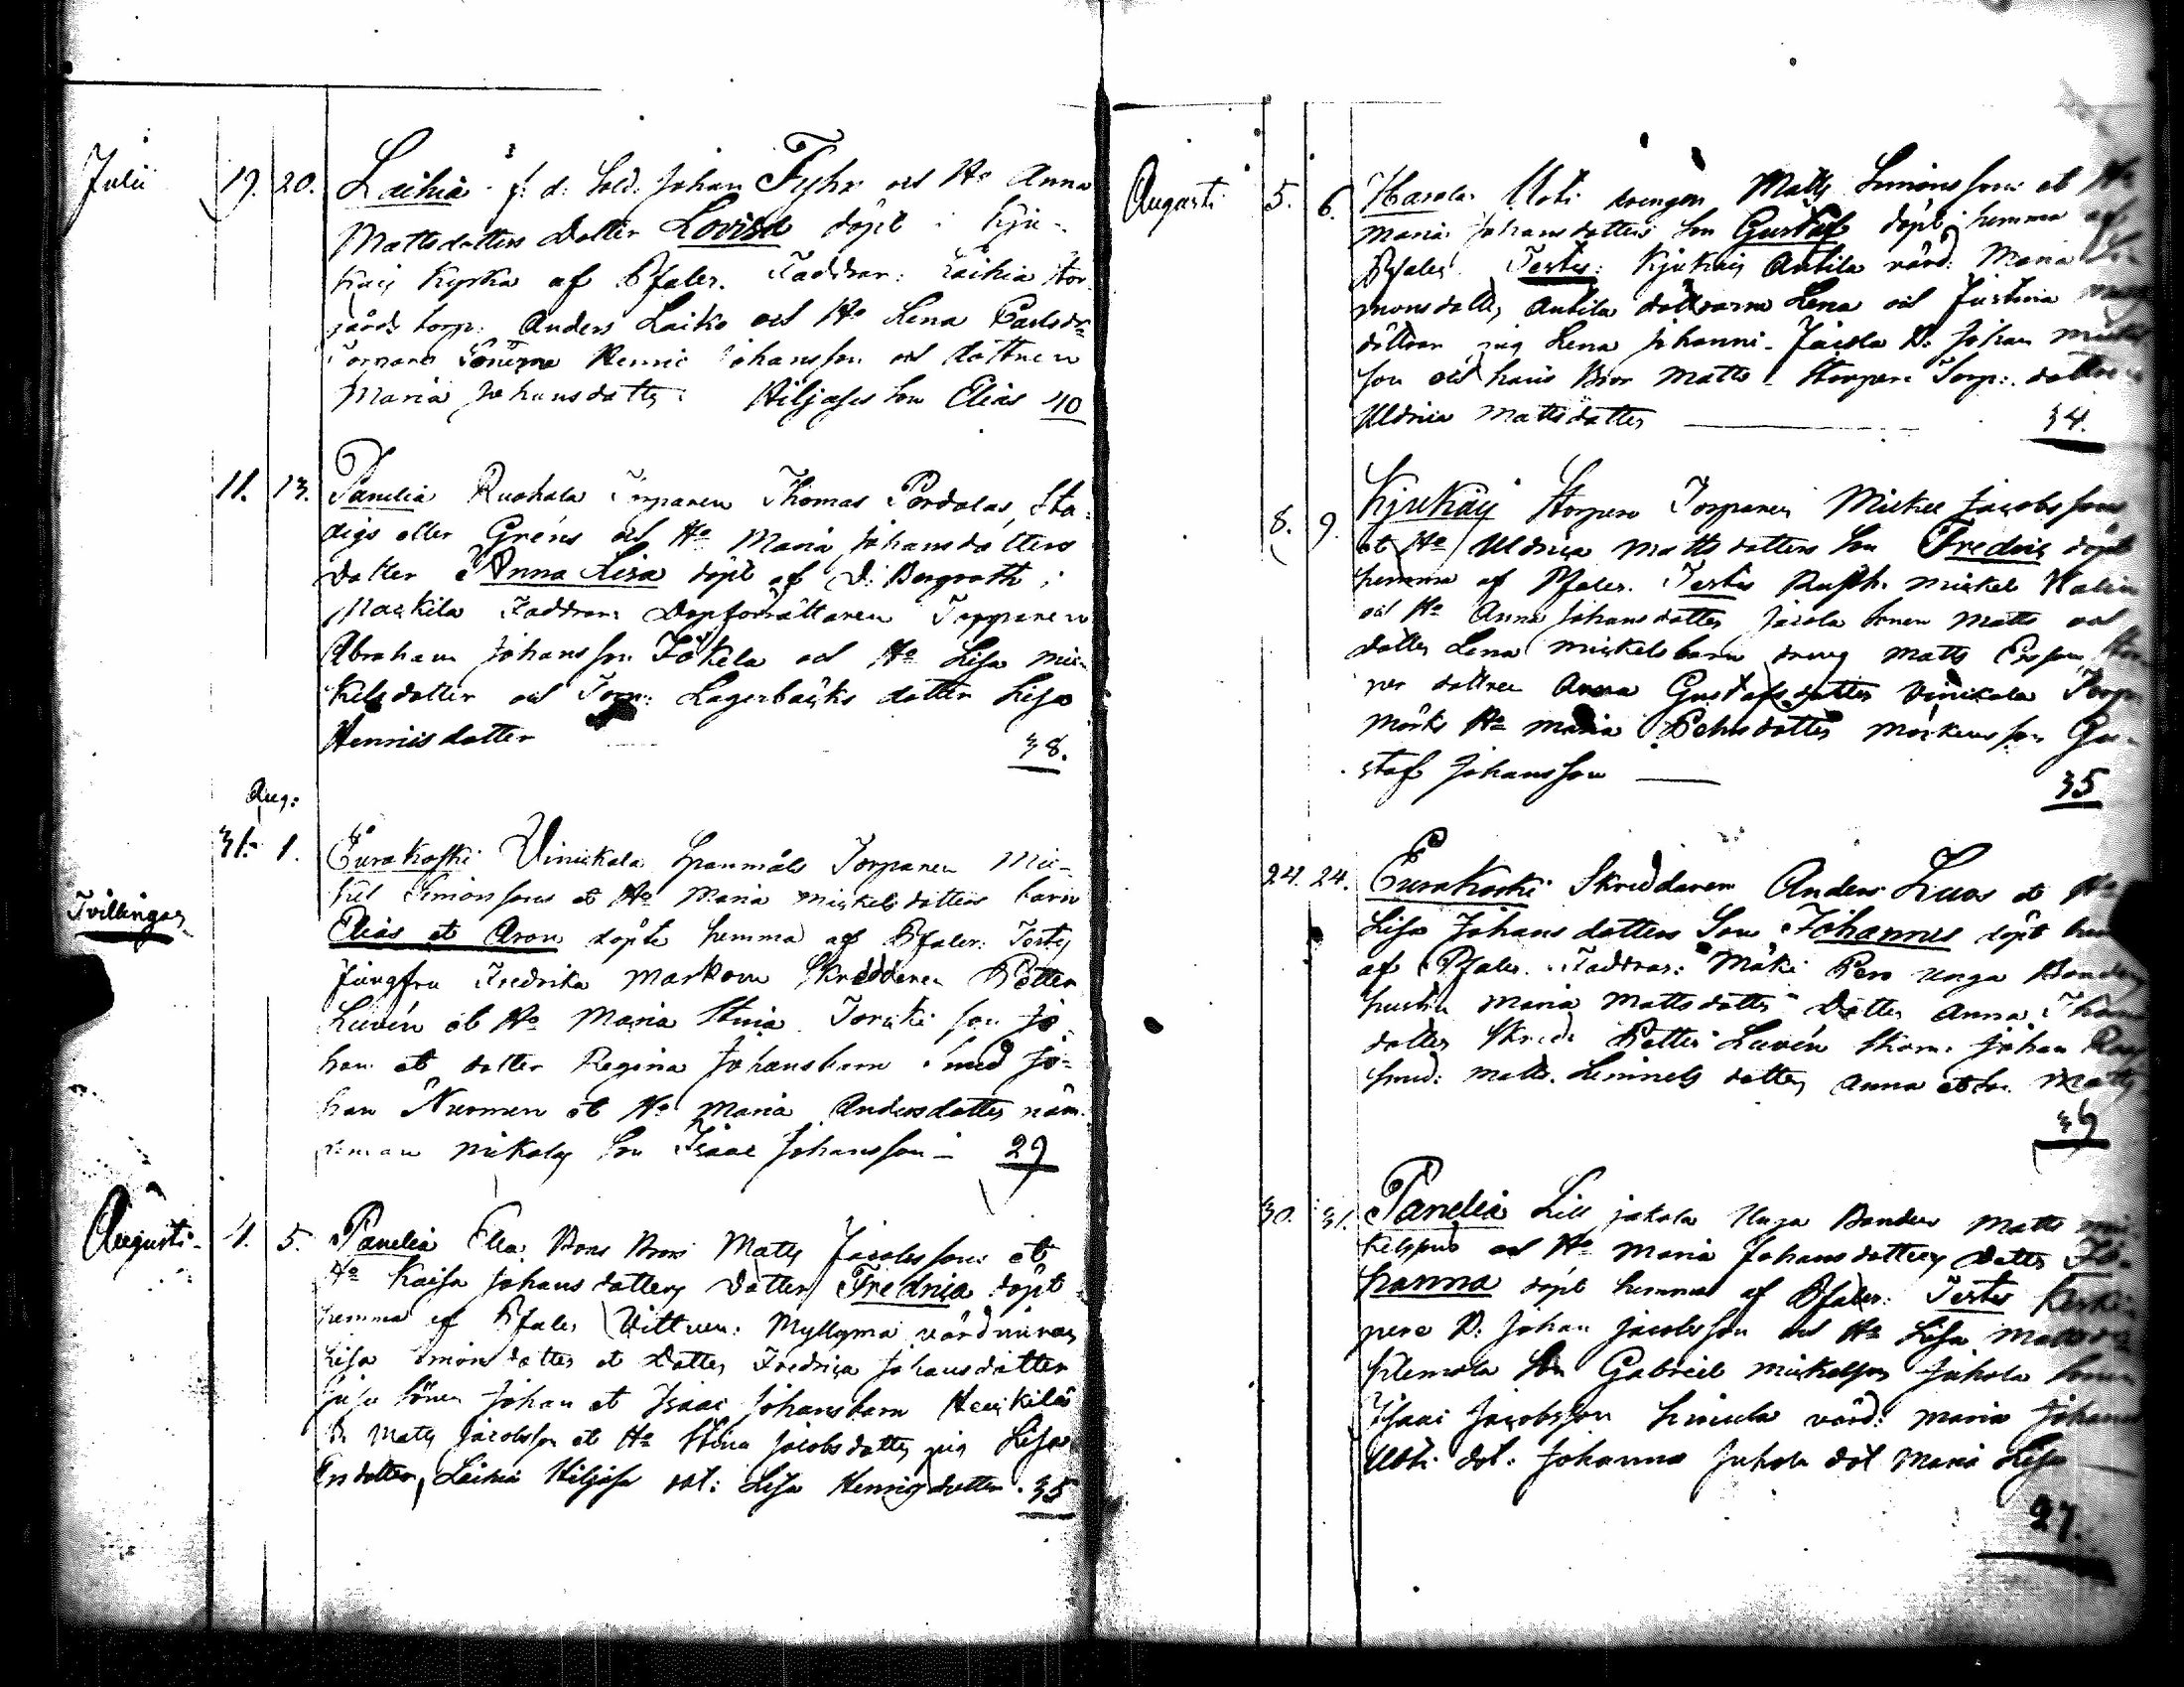 Julii 19. 20. Laihia f: d: Sold: Johan Fyhr och Ho Anna
Mattsdotters Dotter Lovisa döpt i Kju-
kais Kyrka af Pfaler. Faddrar: Laihia Stor
gårds torp: Anders Laiko och Ho Lena Carlsdr
Torpare Henric Johansson och dottren
Maria Johansdotter Hiljases Son Elias 40
11. 13. Panelia Ruohala Torparen Thomas Pordalas, Sta-
digs eller Gréns och Ho Maria Johansdotters
Dotter Anna Lisa döpt af D: Bergroth i
Naskila Faddrar: Dopförrättaren Torparen
Abraham Johansson Jokela och Ho Lisa Mic
kelsdotter och Torp: Lagerbäcks dotter Lisa
Henricsdotter 38.
Aug:
31. 1. Eurakoski Vinickala Spanmåls Torparen Mic-
kel Simonssons et Ho Maria Mickelsdotters barn
Tvillingar
Elias et Aron döpte hemma af Pfaler: Testes
Jungfru Fredrika Markovu Skreddaren Petter
Luvén et Ho Maria Stina Toruki son Jo
han et dotter Regina Johansbarn Smed Jo-
han Nurmen et Ho Maria Andersdotter näm
deman Mikolas Son Isaac Johansson 29
Augusti 4. 5. Panelia Ella Bons Bror Matts Jacobssons et
Ho Kaisa Johansdotters Dotter Fredrica döpt
hemma af Pfaler Vittnen: Myllymä värdinnan
Lisa Simonsdotter et Dotter Fredrica Johansdotter
Juju Sönen Johan et Isaac Johansbarn Heickilä
B. Matts Jacobsson et Ho Stina Jacobsdotter pig Lisa
dotter, Laihia Hiljasa dot: Lisa Henricsdotter. 35
Augusti 5. 6. Harola Uoti drengen Matts Simonssons et Ho
Maria Johansdotters Son Gustaf döpt hemma af
Pfaler. Testes: Kjukais Antila värd: Maria Si
monsdotter, Antila dottrarna Lena och Justina
döttrar pig Lena Johanni. Jaicola D. Johan Mickels
son och hans Bror Matts. Storpere Torp: dottren
Uldrica Mattsdotter 34.
8. 9. Kjukais Storpere Torparen Mickel Jacobssons
et Ho Uldrica Mattsdotters Son Fredric döpt
hemma af Pfaler. Testes Rusth. Mickel Walin
och Ho Anna Johansdotter Jacola Sonen Matts och
dotter Lena Mickelsbarn dreng Matts Ersson, Stor
per dottren Anna Gustafsdotter Vinickala Torp
Mörks Ho Maria Pehrsdotter Mörkens son Gu-
staf Johansson 35
24. 24. Eurakoski Skreddaren Anders Luvas et Ho
Lisa Johansdotters Son Johannes döpt hem
af Pfaler. Faddrar: Mäki Pero Unga Bondens
hustru Maria Mattsdotter Dotter Anna Thom
dotter Skred: Petter Luvén Skom: Johan
Smed: Matts. Limnels dotter Anna et Son Matts
39
30. 31. Panelia Lill Jakola Unga Bonden Matts Mic
kelssons och Ho Maria Johansdotters Dotter Jo-
hanna döpt hemma af Pfaler: Testes Keski
pere B: Johan Jacobsson och Ho Lisa Mattsdr
Klemola Son Gabriel Mickelsson Juhola Sonen
Isaac Jacobsson värd: Maria Johans
Uoti dot. Johanna Juhola dot Maria Lisa
27.